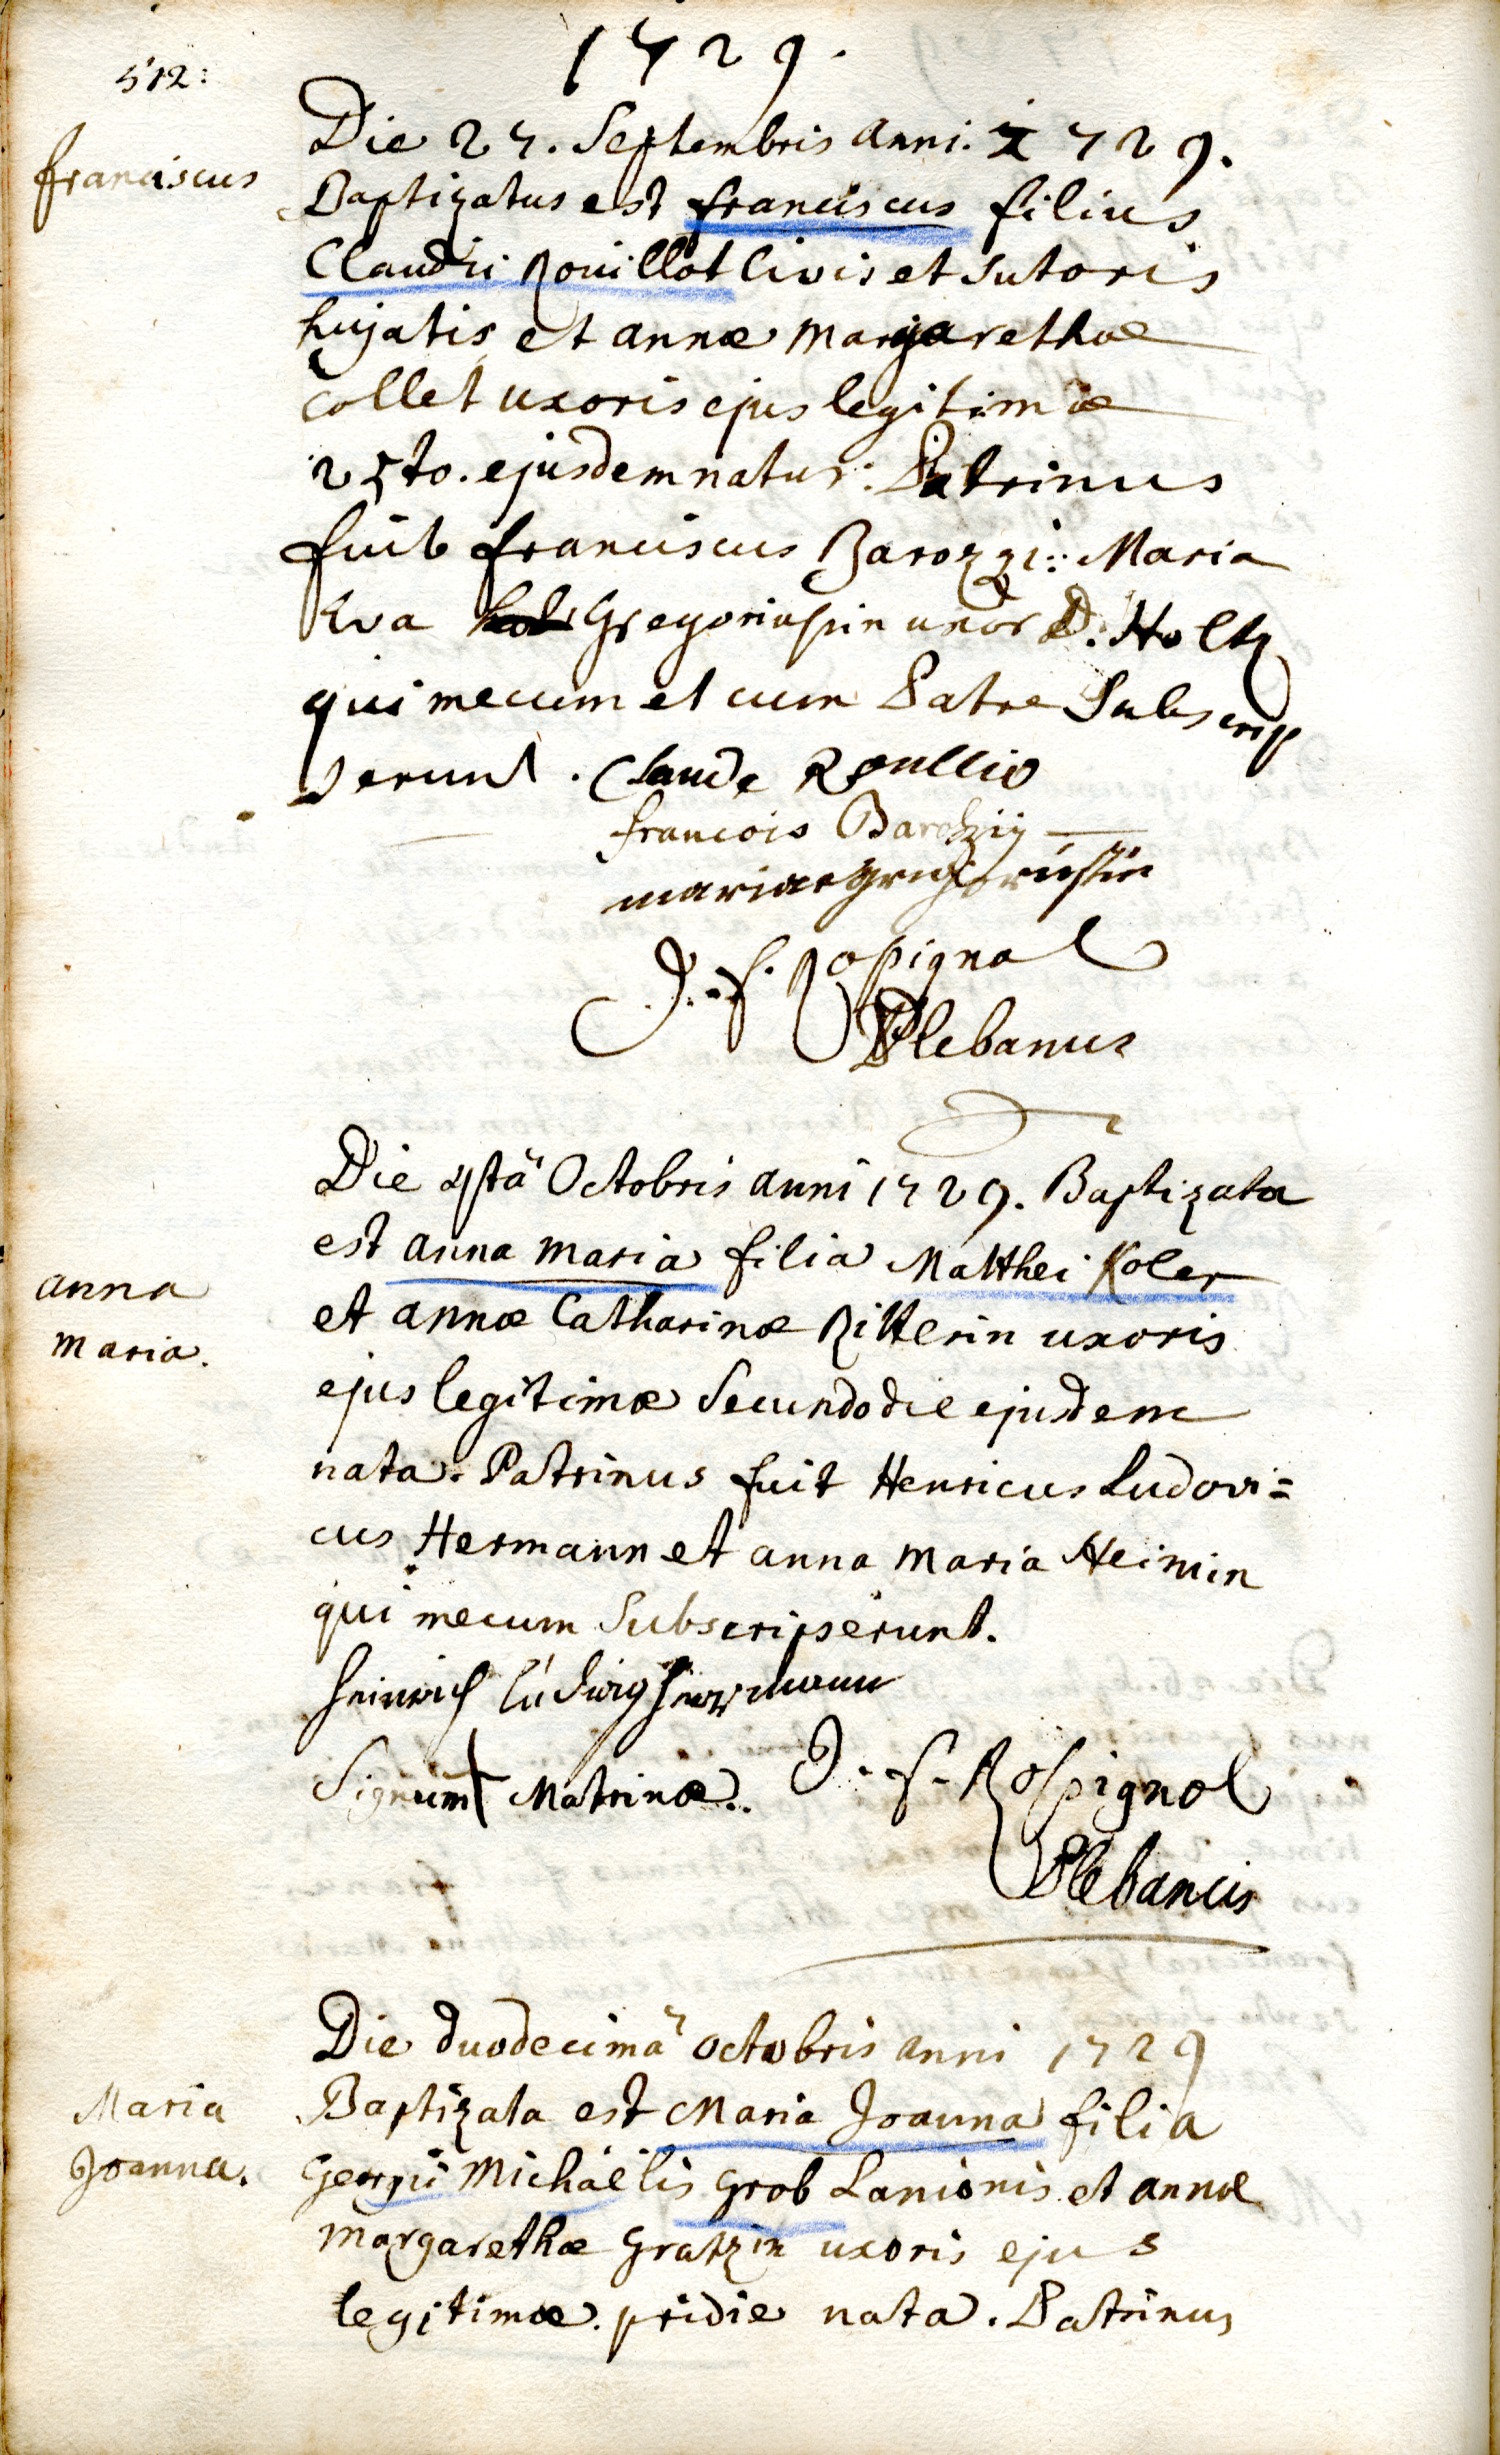 1729.
512:
franciscus
Die 27. Septembris anni. 1729.
Baptizatus est franciscus filius
Claudii Rouillot Civis et Sutoris
hujatis et annæ Margarethæ
Collet uxoris ejus legitimæ
25to. ejusdem natus: Patrinus
fuit franciscus Barozzi: Maria
Eva Gregoriussin uxor D. Holtz
qui mecum et cum Patre Subscrip
serunt. Claude Roullio
francois Barotzÿ
J. f. Rossignol
Plebanus
anna
Maria.
Die 4tâ Octobris anni 1729. Baptizata
est anna Maria filia Matthei Koler
et annæ Catharinæ Ritterin uxoris
ejus legitimæ Secundo die ejusdem
nata. Patrinus fuit Henricus Ludovi=
cus Hermann et anna Maria Heimin
qui mecum Subscripserunt.
Heinrich Ludwig Herrmann
Signum + Matrinæ.. J. f. Rossignol
Plebanus
Maria
Joanna.
Die duodecimâ octobris anni 1729
Baptizata est Maria Joanna filia
Georgii Michaëlis Grob Lanionis et annæ
Margarethæ Gratzin uxoris ejus
legitimæ. pridie nata. Patrinus